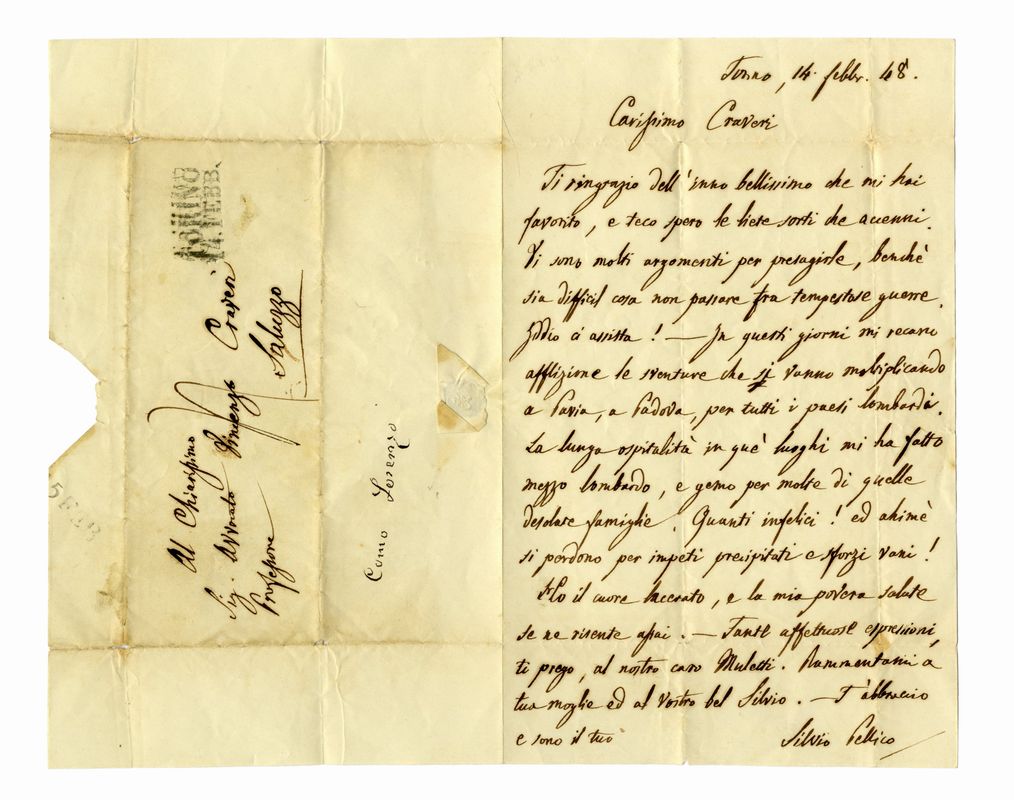 TORINO
14. FEBB.
Al Chiarissimo
Sig. Avvocato Vincenzo Craveri
Professore
Saluzzo
Como Lorenzo
Torino, 14. febbr. 48.
Carissimo Craveri
Ti ringrazio dell'inno bellissimo che mi hai
favorito, e teco spero le liete sorti che accenni.
Vi sono molti argomenti per presagirle, benchè
sia difficil cosa non passare fra tempestose guerre.
Iddio ci assista! — In questi giorni mi recano
afflizione le sventure che si vanno moltiplicando
a Pavia, a Padova, per tutti i paesi lombardi.
La lunga ospitalità in que' luoghi mi ha fatto
mezzo lombardo, e gemo per molte di quelle
desolate famiglie. Quanti infelici! ed ahimè
si perdono per impeti precipitati e sforzi vani!
Ho il cuore lacerato, e la mia povera salute
se ne risente assai. — Tante affettuose espressioni,
ti prego, al nostro caro Muletti. Rammentami a
tua moglie ed al vostro bel Silvio. — T'abbraccio
e sono il tuo
Silvio Pellico